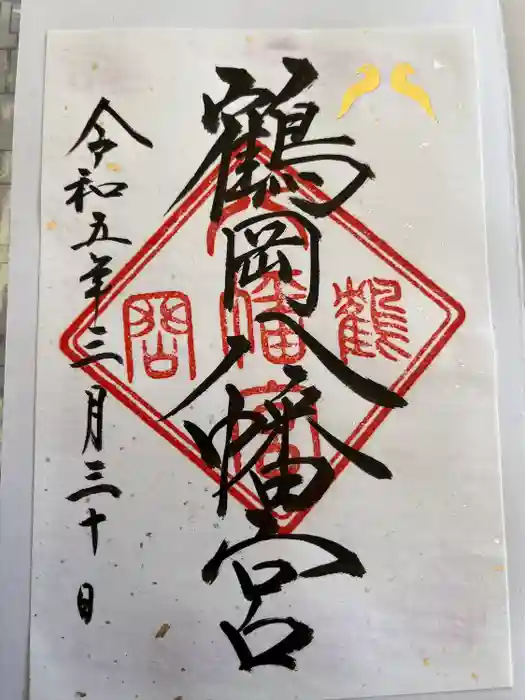 鶴岡八幡宮
令和五年三月三十日
鶴岡八幡宮